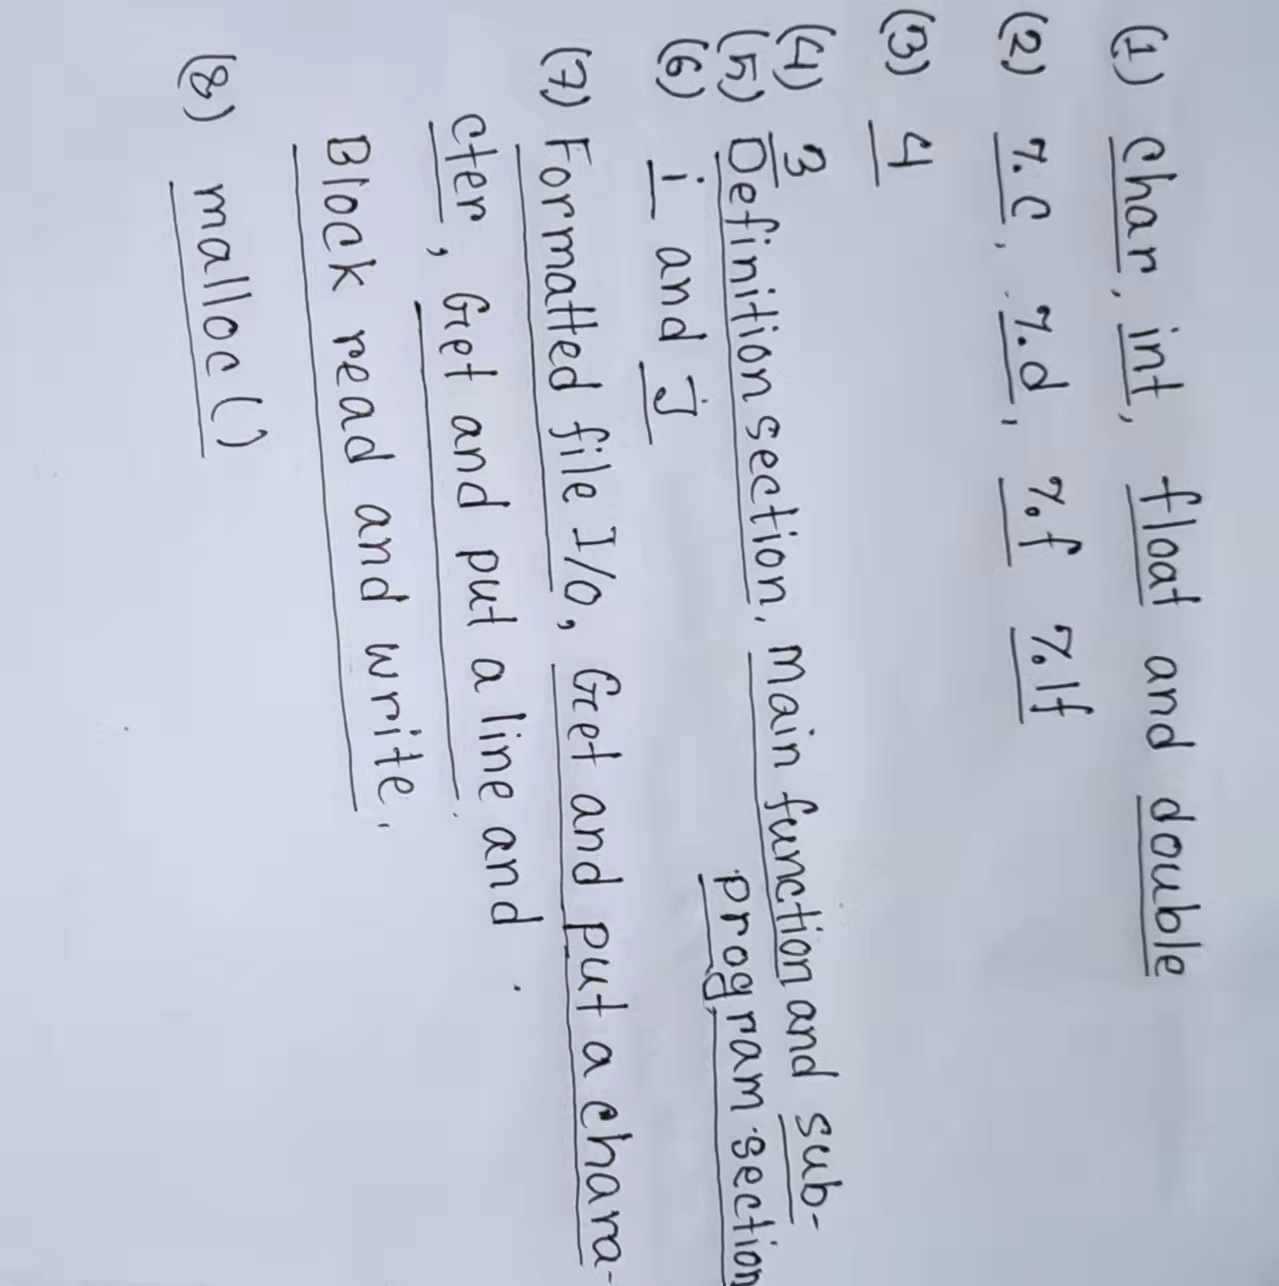 (1) char, int, float and double
(2) %c, %d, %f %lf
(3) 4
(4) 3
(5) Definition section, main function and sub-
program section
(6) i and j
(7) Formatted file I/o, Get and put a chara-
cter, Get and put a line and
Block read and write.
(8) malloc()